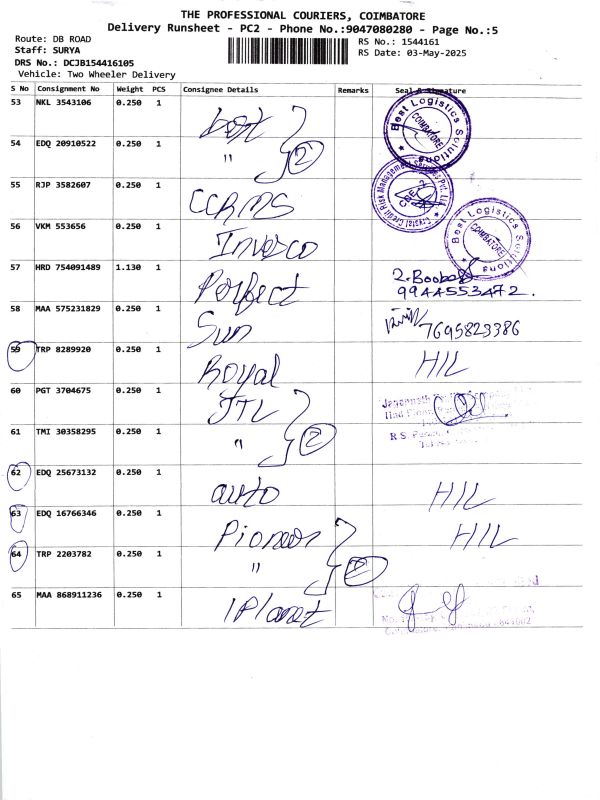 THE PROFESSIONAL COURIERS, COIMBATORE
Delivery Runsheet - PC2 - Phone No.:9047080280 - Page No.:5
Route: DB ROAD
Staff: SURYA
DRS No.: DCJB154416105
Vehicle: Two Wheeler Delivery
RS No.: 1544161
RS Date: 03-May-2025
S No Consignment No Weight PCS Consignee Details Remarks Seal & Signature
53 NKL 3543106 0.250 1 Best Best Logistics Solutions COIMBATORE
54 EDQ 20910522 0.250 1 " 2
55 RJP 3582607 0.250 1 CCRMS Crystal Credit Risk Management Services Pvt. Ltd. CBE
56 VKM 553656 0.250 1 Invesco Best Logistics Solutions COIMBATORE
57 HRD 754091489 1.130 1 Perfect 9944553472.
58 MAA 575231829 0.250 1 Sun 7695823386
59 TRP 8289920 0.250 1 Royal HIL
60 PGT 3704675 0.250 1 JTL
61 TMI 30358295 0.250 1 " 2
62 EDQ 25673132 0.250 1 auto HIL
63 EDQ 16766346 0.250 1 Pioneer HIL
64 TRP 2203782 0.250 1 " 2
65 MAA 868911236 0.250 1 IPlanet